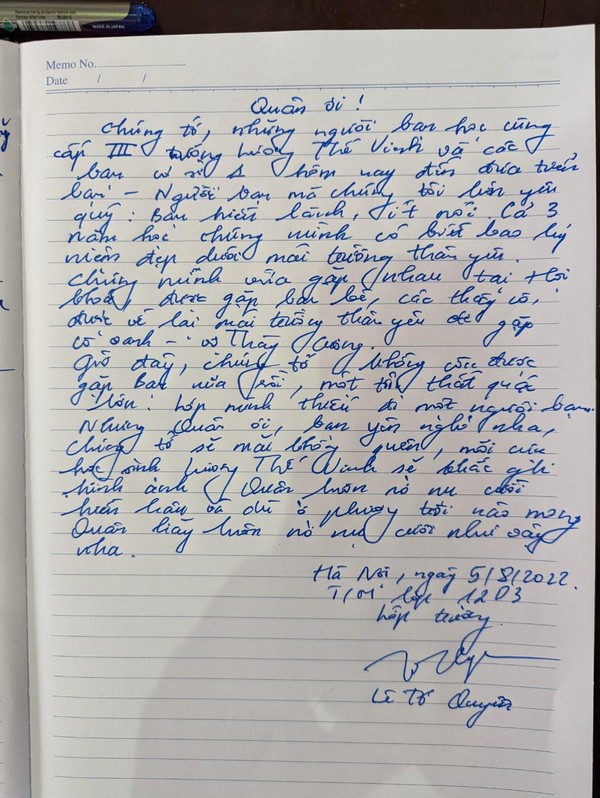 MADE IN JAPAN
Memo No.
Date / /
Quân ơi!
Chúng tớ, những người bạn học cùng
cấp III trường Lương Thế Vinh và các
bạn cơ sở A hôm nay đến đưa tiễn
bạn – Người bạn mà chúng tôi luôn yêu
quý: Bạn hiền lành, ít nói. Cả 3
năm học chúng mình có biết bao kỷ
niệm đẹp dưới mái trường thân yêu.
Chúng mình vừa gặp nhau tại Hội
khoá, được gặp bạn bè, các thầy cô,
được về lại mái trường thân yêu để gặp
cô Oanh – và Thầy Cương.
Giờ đây, chúng tớ không còn được
gặp bạn nữa rồi, một tổn thất quá
lớn: lớp mình thiếu đi một người bạn.
Nhưng Quân ơi, bạn yên nghỉ nha,
Chúng tớ sẽ mãi không quên, mỗi cựu
học sinh Lương Thế Vinh sẽ khắc ghi
hình ảnh Quân luôn nở nụ cười
hiền hậu và dù ở phương trời nào mong
Quân hãy luôn nở nụ cười như vậy
nha.
Hà Nội, ngày 5/8/2022.
T/M lớp 12D3
Lớp trưởng
Lê Tố Quyên